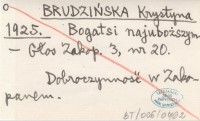 BRUDZIŃSKA Krystyna
1925. Bogatsi najuboższym
- Głos Zakop. 3, nr 20.
Dobroczynność w Zako-
panem.